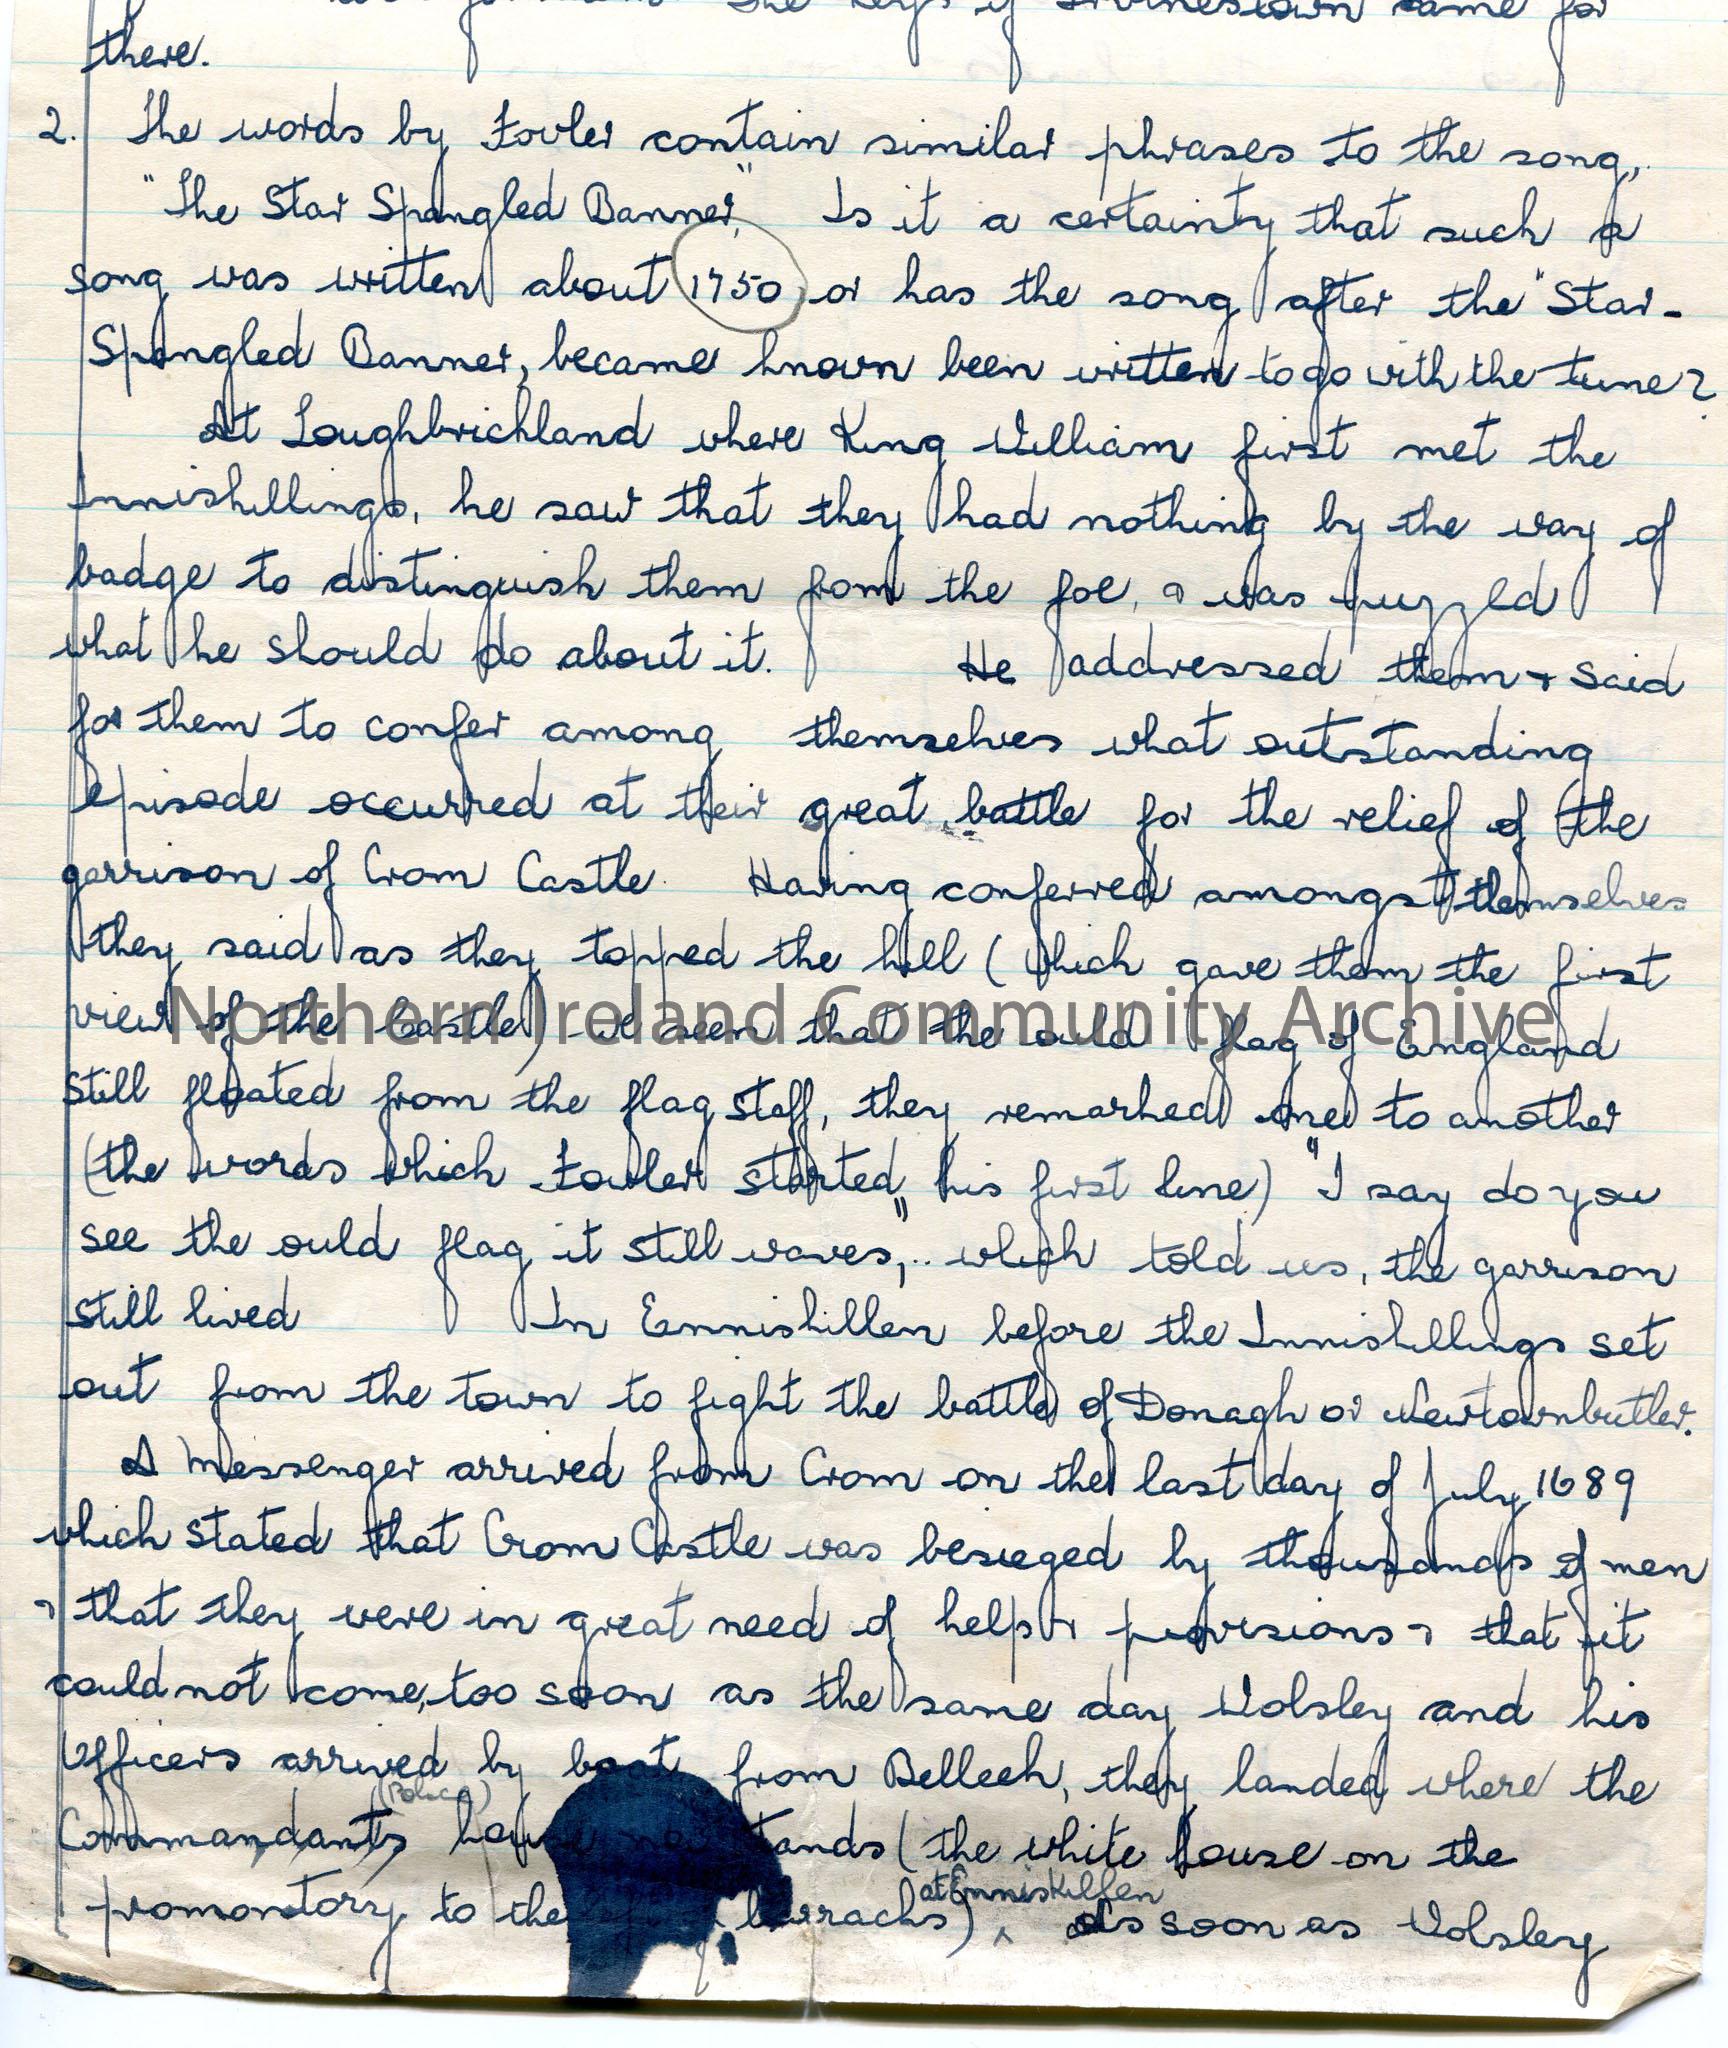 The keys of Irvinestown came for
there.
2. The words by Fowler contain similar phrases to the song,
"The Star Spangled Banner". Is it a certainty that such a
song was written about 1750 or has the song after the "Star-
Spangled Banner, became known been written to go with the tune?
At Loughbrickland where King William first met the
Inniskillings, he saw that they had nothing by the way of
badge to distinguish them from the foe, & was puzzled
what he should do about it. He addressed them & said
for them to confer among themselves what outstanding
episode occurred at their great battle for the relief of the
garrison of Crom Castle. Having conferred amongst themselves
they said as they topped the hill (which gave them the first
view of the Castle) we seen that the ould flag of England
still floated from the flag staff, they remarked one to another
(the words which Fowler started his first line) "I say do you
see the ould flag it still waves", .. which told us, the garrison
still lived In Enniskillen before the Inniskillings set
out from the town to fight the battle of Donagh or Newtownbutler.
A messenger arrived from Crom on the last day of July 1689
which stated that Crom Castle was besieged by thousands of men
& that they were in great need of help & provisions & that it
could not come, too soon as the same day Wolsley and his
Officers arrived by boat from Belleek, they landed where the
(Police)
Commandants house now stands (the white house on the
at Enniskillen
promontory to the left of barracks) ^ As soon as Wolsley
Northern Ireland Community Archive